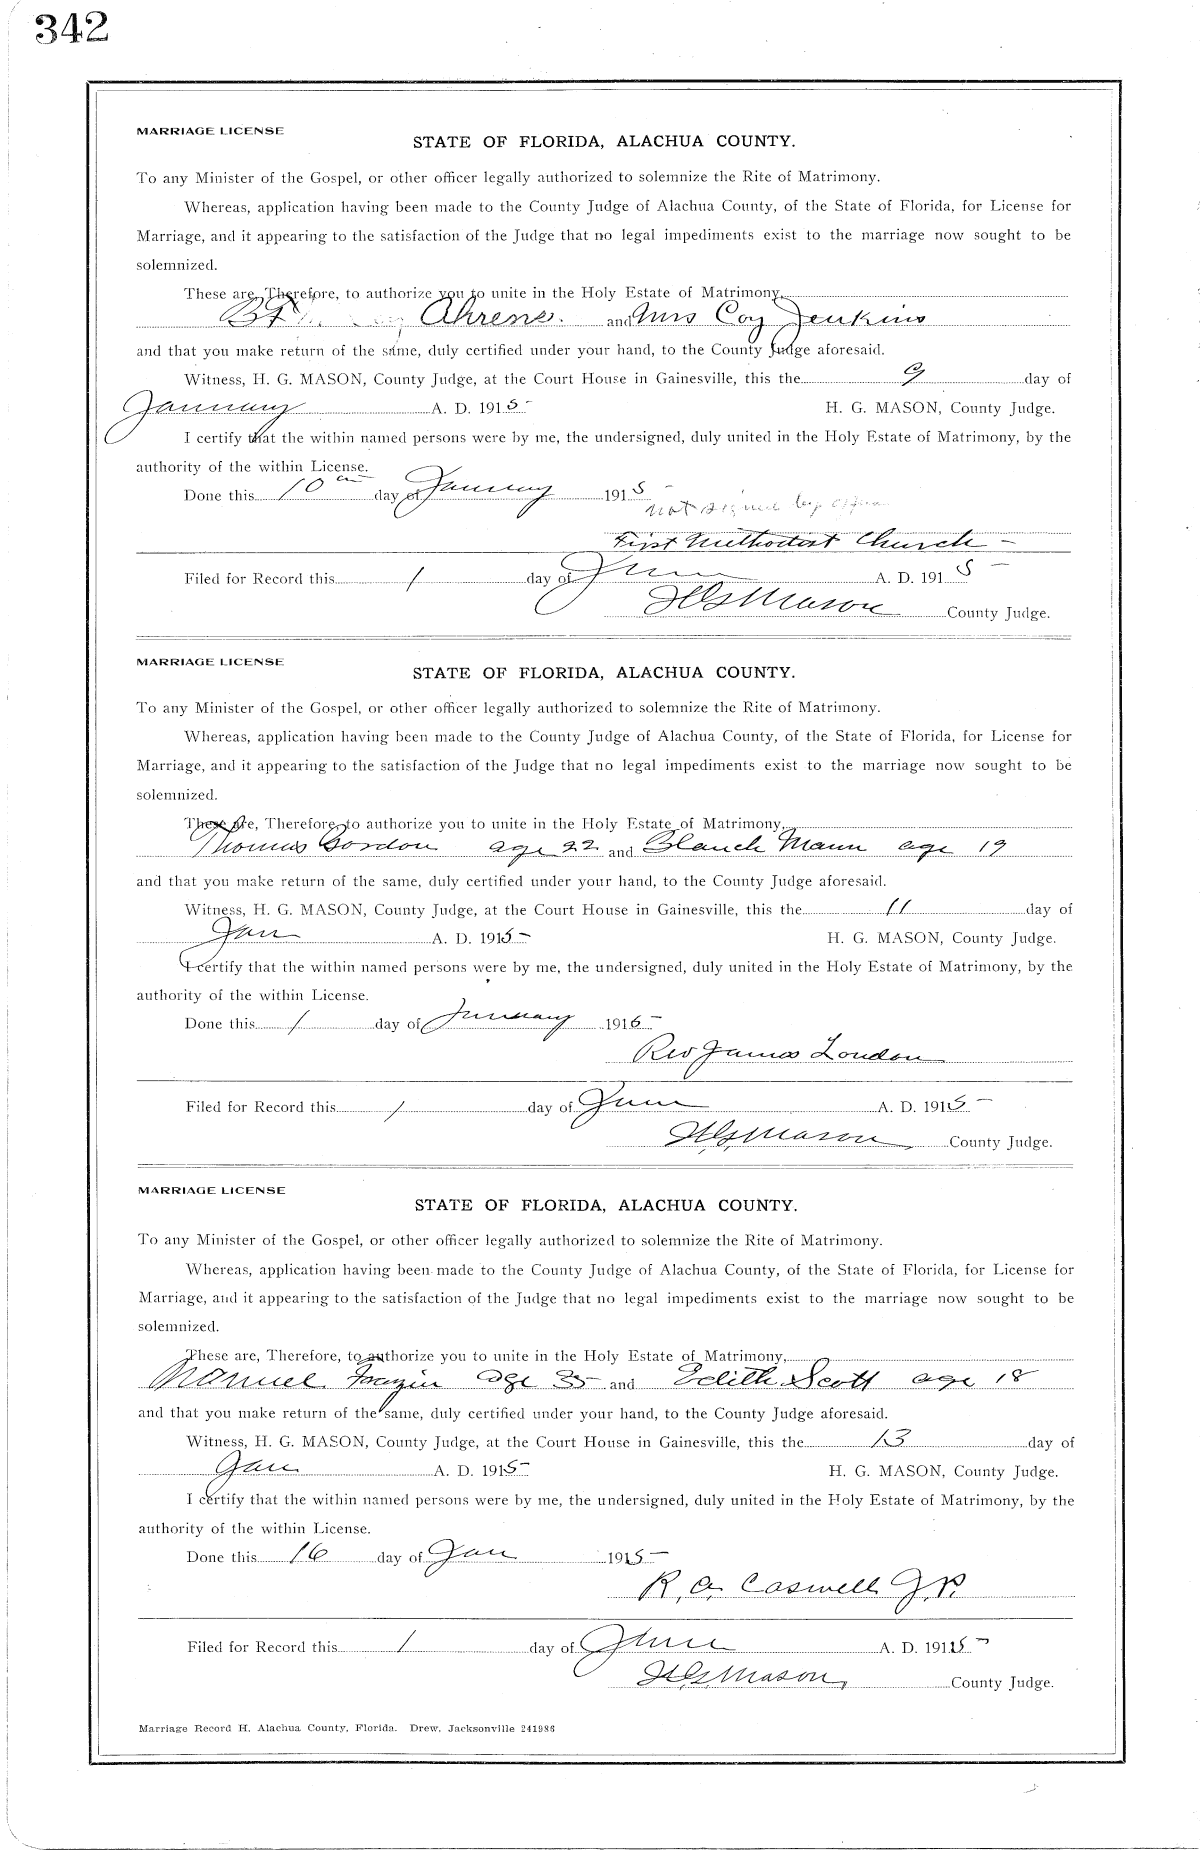 342
MARRIAGE LICENSE
STATE OF FLORIDA, ALACHUA COUNTY.
To any Minister of the Gospel, or other officer legally authorized to solemnize the Rite of Matrimony.
Whereas, application having been made to the County Judge of Alachua County, of the State of Florida, for License for
Marriage, and it appearing to the satisfaction of the Judge that no legal impediments exist to the marriage now sought to be
solemnized.
These are, Therefore, to authorize you to unite in the Holy Estate of Matrimony,
BF Ahrens. and Mrs Coy Jenkins
and that you make return of the same, duly certified under your hand, to the County Judge aforesaid.
Witness, H. G. MASON, County Judge, at the Court House in Gainesville, this the 9 day of
January A. D. 1915- H. G. MASON, County Judge.
I certify that the within named persons were by me, the undersigned, duly united in the Holy Estate of Matrimony, by the
authority of the within License.
Done this 10 day of January 1915-
not signed by
First Methodist Church -
Filed for Record this 1 day of June A. D. 1915-
H G Mason County Judge.
MARRIAGE LICENSE
STATE OF FLORIDA, ALACHUA COUNTY.
To any Minister of the Gospel, or other officer legally authorized to solemnize the Rite of Matrimony.
Whereas, application having been made to the County Judge of Alachua County, of the State of Florida, for License for
Marriage, and it appearing to the satisfaction of the Judge that no legal impediments exist to the marriage now sought to be
solemnized.
These are, Therefore, to authorize you to unite in the Holy Estate of Matrimony,
Thomas Gordon age 22 and Blanch Mann age 19
and that you make return of the same, duly certified under your hand, to the County Judge aforesaid.
Witness, H. G. MASON, County Judge, at the Court House in Gainesville, this the 11 day of
Jan A. D. 1915- H. G. MASON, County Judge.
I certify that the within named persons were by me, the undersigned, duly united in the Holy Estate of Matrimony, by the
authority of the within License.
Done this 1 day of January 1916-
Rev James London
Filed for Record this 1 day of June A. D. 1915-
H. G. Mason County Judge.
MARRIAGE LICENSE
STATE OF FLORIDA, ALACHUA COUNTY.
To any Minister of the Gospel, or other officer legally authorized to solemnize the Rite of Matrimony.
Whereas, application having been made to the County Judge of Alachua County, of the State of Florida, for License for
Marriage, and it appearing to the satisfaction of the Judge that no legal impediments exist to the marriage now sought to be
solemnized.
These are, Therefore, to authorize you to unite in the Holy Estate of Matrimony,
Manuel Frazier age 35- and Edith Scott age 18
and that you make return of the same, duly certified under your hand, to the County Judge aforesaid.
Witness, H. G. MASON, County Judge, at the Court House in Gainesville, this the 13 day of
Jan A. D. 1915- H. G. MASON, County Judge.
I certify that the within named persons were by me, the undersigned, duly united in the Holy Estate of Matrimony, by the
authority of the within License.
Done this 16 day of Jan 1915-
R. A. Caswell J. P.
Filed for Record this 1 day of June A. D. 1915-
H. G. Mason, County Judge.
Marriage Record H, Alachua County, Florida. Drew, Jacksonville 241986